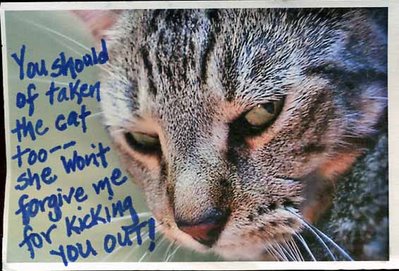 You should
of taken
the cat
too--
she won't
forgive me
for kicking
you out!